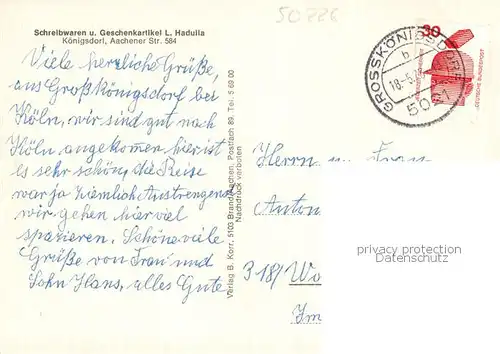 50226
Schreibwaren u. Geschenkartikel L. Hadulla
Königsdorf, Aachener Str. 584
Viele herzliche Grüße,
aus Großkönigsdorf bei
Köln, wir sind gut nach
Köln angekommen hier ist
es sehr schön, die Reise
war ja ziemliche Anstrengend
wir gehen hier viel
spazieren. Schöne viele
Grüße von Frau und
Sohn Hans, alles Gute
Verlag B. Kerr, 5103 Brand/Aachen, Postfach 89, Tel. 5 69 00
Nachdruck verboten
GROSSKÖNIGSDORF
b
18.-5.
5021
30
DEUTSCHE BUNDESPOST
Herrn u. Frau
Anton
318/ Wo
Im
privacy protection